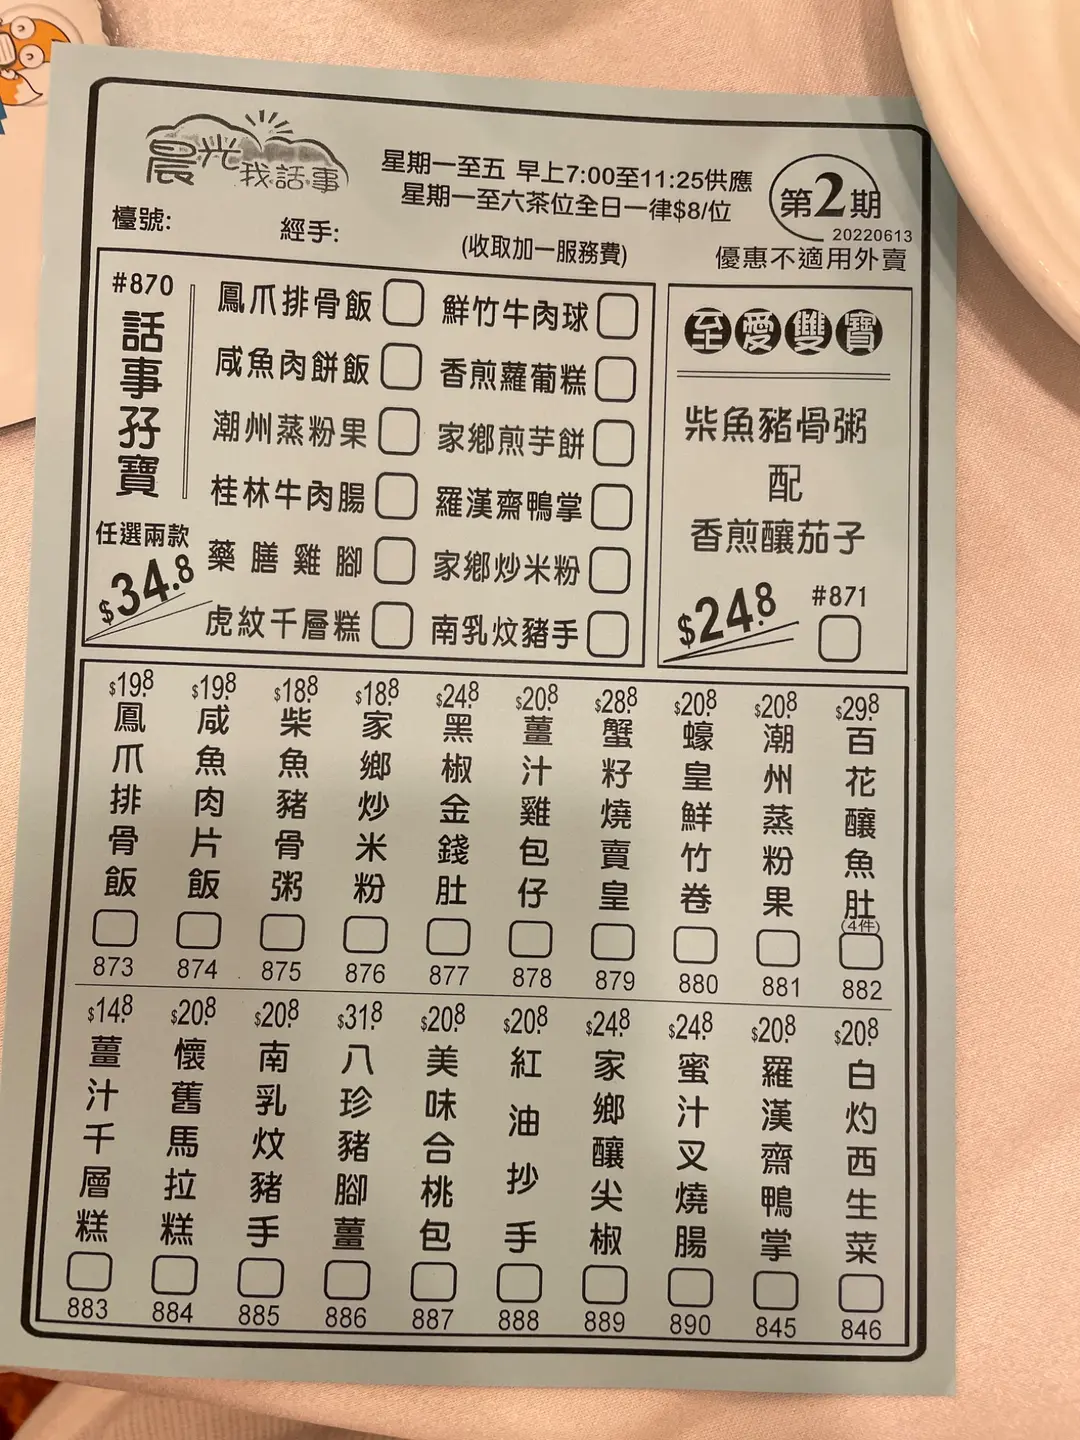 晨光我話事
星期一至五 早上7:00至11:25供應
星期一至六茶位全日一律$8/位
(收取加一服務費)
第2期
20220613
優惠不適用外賣
檯號:
經手:
#870
話事孖寶
任選兩款
$34.8
鳳爪排骨飯
鮮竹牛肉球
咸魚肉餅飯
香煎蘿蔔糕
潮州蒸粉果
家鄉煎芋餅
桂林牛肉腸
羅漢齋鴨掌
藥膳雞腳
家鄉炒米粉
虎紋千層糕
南乳炆豬手
至愛雙寶
柴魚豬骨粥
配
香煎釀茄子
$24.8
#871
$19.8 鳳爪排骨飯 873
$19.8 咸魚肉片飯 874
$18.8 柴魚豬骨粥 875
$18.8 家鄉炒米粉 876
$24.8 黑椒金錢肚 877
$20.8 薑汁雞包仔 878
$28.8 蟹籽燒賣皇 879
$20.8 蠔皇鮮竹卷 880
$20.8 潮州蒸粉果 881
$29.8 百花釀魚肚 (4件) 882
$14.8 薑汁千層糕 883
$20.8 懷舊馬拉糕 884
$20.8 南乳炆豬手 885
$31.8 八珍豬腳薑 886
$20.8 美味合桃包 887
$20.8 紅油抄手 888
$24.8 家鄉釀尖椒 889
$24.8 蜜汁叉燒腸 890
$20.8 羅漢齋鴨掌 845
$20.8 白灼西生菜 846